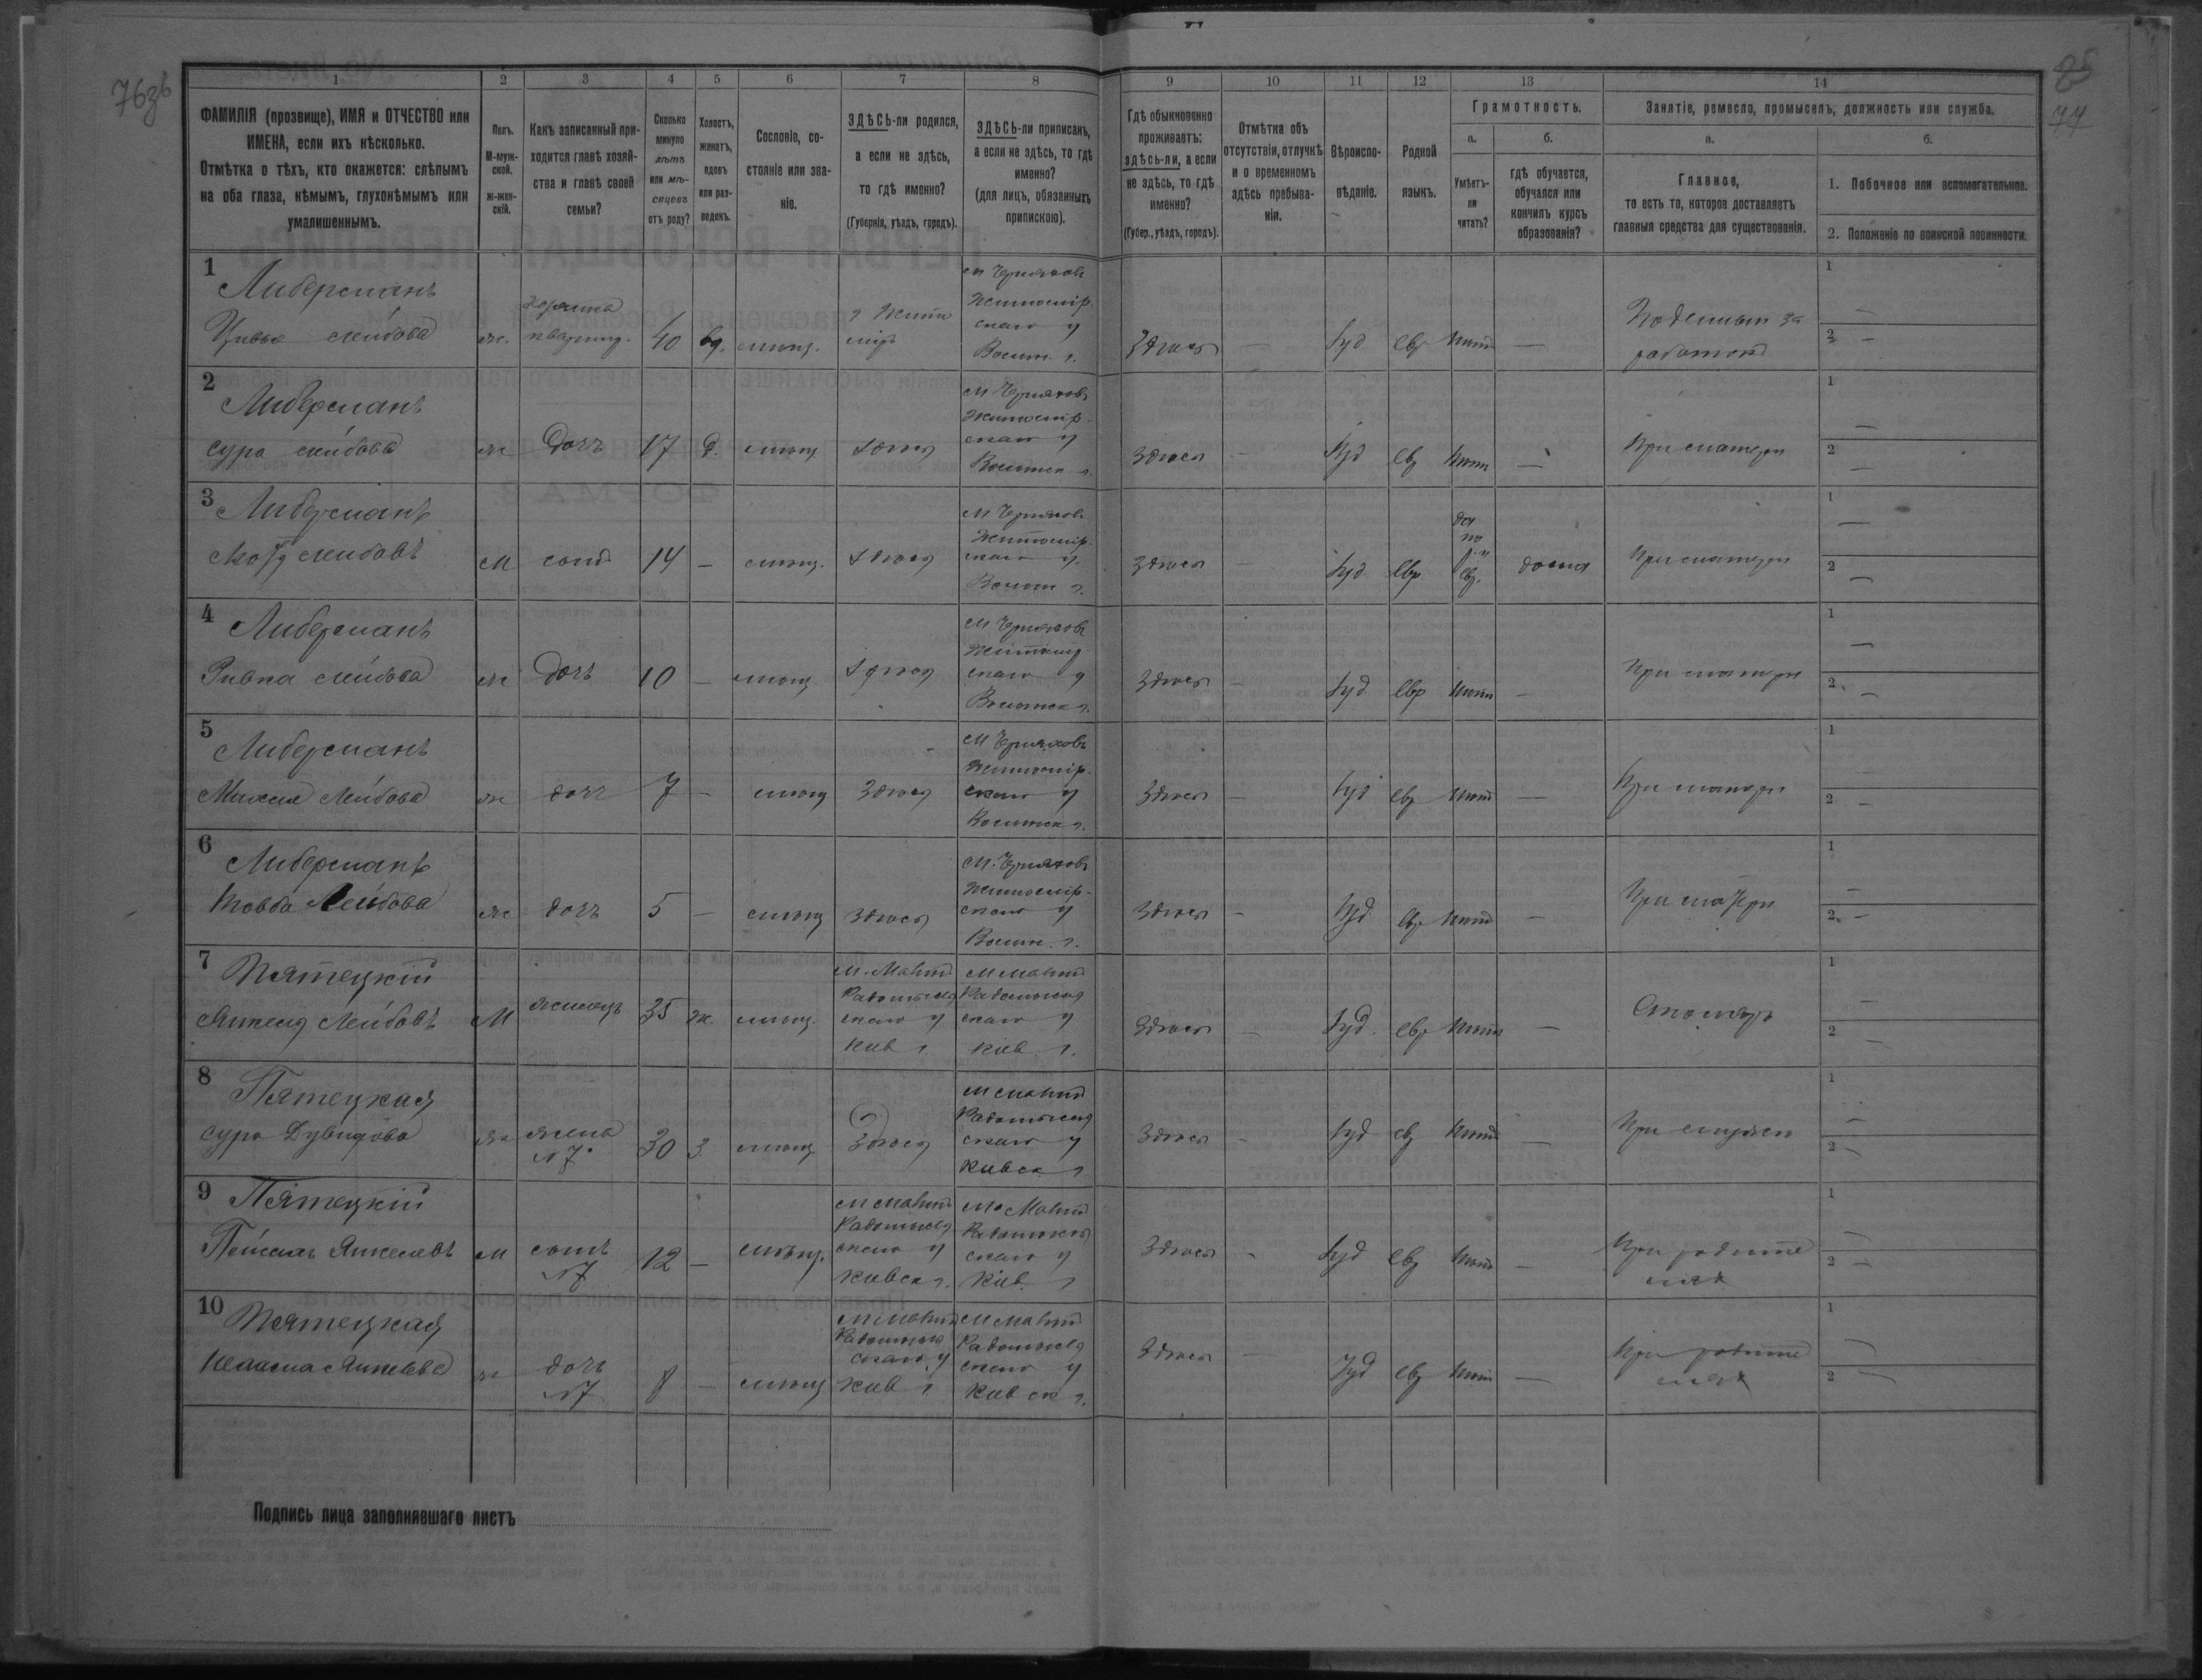 76зв
25
77
1
2
3
4
5
6
7
8
9
10
11
12
13
14
ФАМИЛІЯ (прозвище), ИМЯ и ОТЧЕСТВО или
ИМЕНА, если ихъ нѣсколько.
Отмѣтка о тѣхъ, кто окажется: слѣпымъ
на оба глаза, нѣмымъ, глухонѣмымъ или
умалишеннымъ.
Полъ.
М-муж-
ской.
ж-жен-
скій.
Какъ записанный при-
ходится главѣ хозяй-
ства и главѣ своей
семьи?
Сколько
минуло
лѣтъ
или мѣ-
сяцевъ
отъ роду?
Холостъ,
женатъ,
вдовъ
или раз-
веденъ.
Сословіе, со-
стояніе или зва-
ніе.
ЗДѢСЬ-ли родился,
а если не здѣсь,
то гдѣ именно?
(Губернія, уѣздъ, городъ).
ЗДѢСЬ-ли приписанъ,
а если не здѣсь, то гдѣ
именно?
(для лицъ, обязанныхъ
припискою).
Гдѣ обыкновенно
проживаетъ:
здѣсь-ли, а если
не здѣсь, то гдѣ
именно?
(Губер., уѣздъ, городъ).
Отмѣтка объ
отсутствіи, отлучкѣ
и о временномъ
здѣсь пребыва-
ніи.
Вѣроиспо-
вѣданіе.
Родной
языкъ.
Грамотность.
а.
б.
Умѣетъ-
ли
читать?
гдѣ обучается,
обучался или
кончилъ курсъ
образованія?
Занятіе, ремесло, промыселъ, должность или служба.
а.
б.
Главное,
то есть то, которое доставляетъ
главныя средства для существованія.
1. Побочное или вспомогательное.
2. Положеніе по воинской повинности.
1
Либерманъ
Цивья Лейбова
ж.
квартир.
40
вд.
мѣщ.
г Жито
міръ
м Черняховъ
Житомір.
скаго у
Волын. г.
Здѣсь
—
Іуд
евр
нѣтъ
—
Поденныя за
работки
1
—
2
—
2
Либерманъ
Сура Лейбова
ж
дочь
17
д.
мѣщ
здѣсь
м Черняховъ
Житомір
скаго у
Волынск г.
здѣсь
—
Іуд
евр
нѣтъ
—
При матери
1
—
2
—
3
Либерманъ
Лейбовъ
м
сынъ
14
—
мѣщ.
здѣсь
м Черняховъ
Житомір.
скаго у.
Волын г.
здѣсь
—
Іуд
евр
да
по
евр.
дома
При матери
1
—
2
—
4
Либерманъ
Ривка Лейбова
ж
дочь
10
—
мѣщ
здѣсь
м Черняховъ
Житомір
скаго у
Волынск г.
здѣсь
—
Іуд
евр
нѣтъ
—
При матери
1
—
2.
—
5
Либерманъ
Лейбова
ж
дочь
7
—
мѣщ
здѣсь
м Черняховъ
Житомір.
скаго у
Волынск г.
здѣсь
—
Іуд
евр
нѣтъ
—
При матери
1
2
—
6
Либерманъ
Товба Лейбова
ж
дочь
5
—
мѣщ
здѣсь
м. Черняховъ
Житомір-
скаго у
Волын. г.
здѣсь
—
Іуд
евр
нѣтъ
—
При матери
1
—
2.
—
7
Пятецкій
Янкель Лейбовъ
М
жилецъ
35
ж.
мѣщ.
м. Малинъ
Радомысл
скаго у
Кіев г
м Малинъ
Радомысл
скаго у
Кіев. г.
здѣсь
—
Іуд.
евр
нѣтъ
—
Столяръ
1
—
2
—
8
Пятецкая
Сура Дувидова
ж
жена
№7
30
з
мѣщ
здѣсь
м Малинъ
Радомысл
скаго у
Кіевск г
здѣсь
—
Іуд
евр
нѣтъ
—
При мужѣ
1
—
2
—
9
Пятецкій
Пейсахъ Янкелевъ
м
сынъ
№7
12
—
мѣщ.
м Малинъ
Радомысл
скаго у
Кіевск г.
м. Малинъ
Радомысл
скаго у
Кіев. г
здѣсь
-
Іуд
евр
нѣтъ
—
При родите
ляхъ
1
—
2
—
10
Пятецкая
Янкелева
ж
дочь
№7
8
—
мѣщ
м Малинъ
Радомысл
скаго у
Кіев г
м Малинъ
Радомысл
скаго у
Кіевск г.
здѣсь
—
Іуд
евр
нѣтъ
—
При родите
ляхъ
1
—
2
—
Подпись лица заполнявшаго листъ